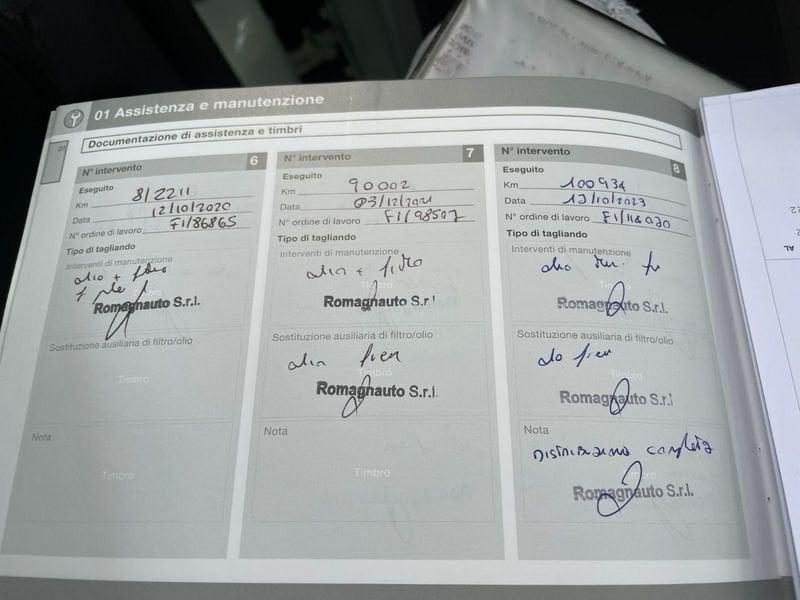 01 Assistenza e manutenzione
Documentazione di assistenza e timbri
01
N° intervento 6
Eseguito
Km 8/2211
Data 12/10/2020
N° ordine di lavoro F1/86865
Tipo di tagliando
Interventi di manutenzione
olio + filtro
Timbro
Romagnauto S.r.l.
Sostituzione ausiliaria di filtro/olio
Timbro
Nota
Timbro
N° intervento 7
Eseguito
Km 90002
Data 03/12/2021
N° ordine di lavoro F1/98507
Tipo di tagliando
Interventi di manutenzione
olio + filtro
Timbro
Romagnauto S.r.l
Sostituzione ausiliaria di filtro/olio
olio freni
Timbro
Romagnauto S.r.l.
Nota
Timbro
N° intervento 8
Eseguito
Km 100934
Data 13/10/2023
N° ordine di lavoro F1/118030
Tipo di tagliando
Interventi di manutenzione
olio
Timbro
Romagnauto S.r.l.
Sostituzione ausiliaria di filtro/olio
olio freni
Timbro
Romagnauto S.r.l
Nota
Distribuzione completa
Timbro
Romagnauto S.r.l.
AL